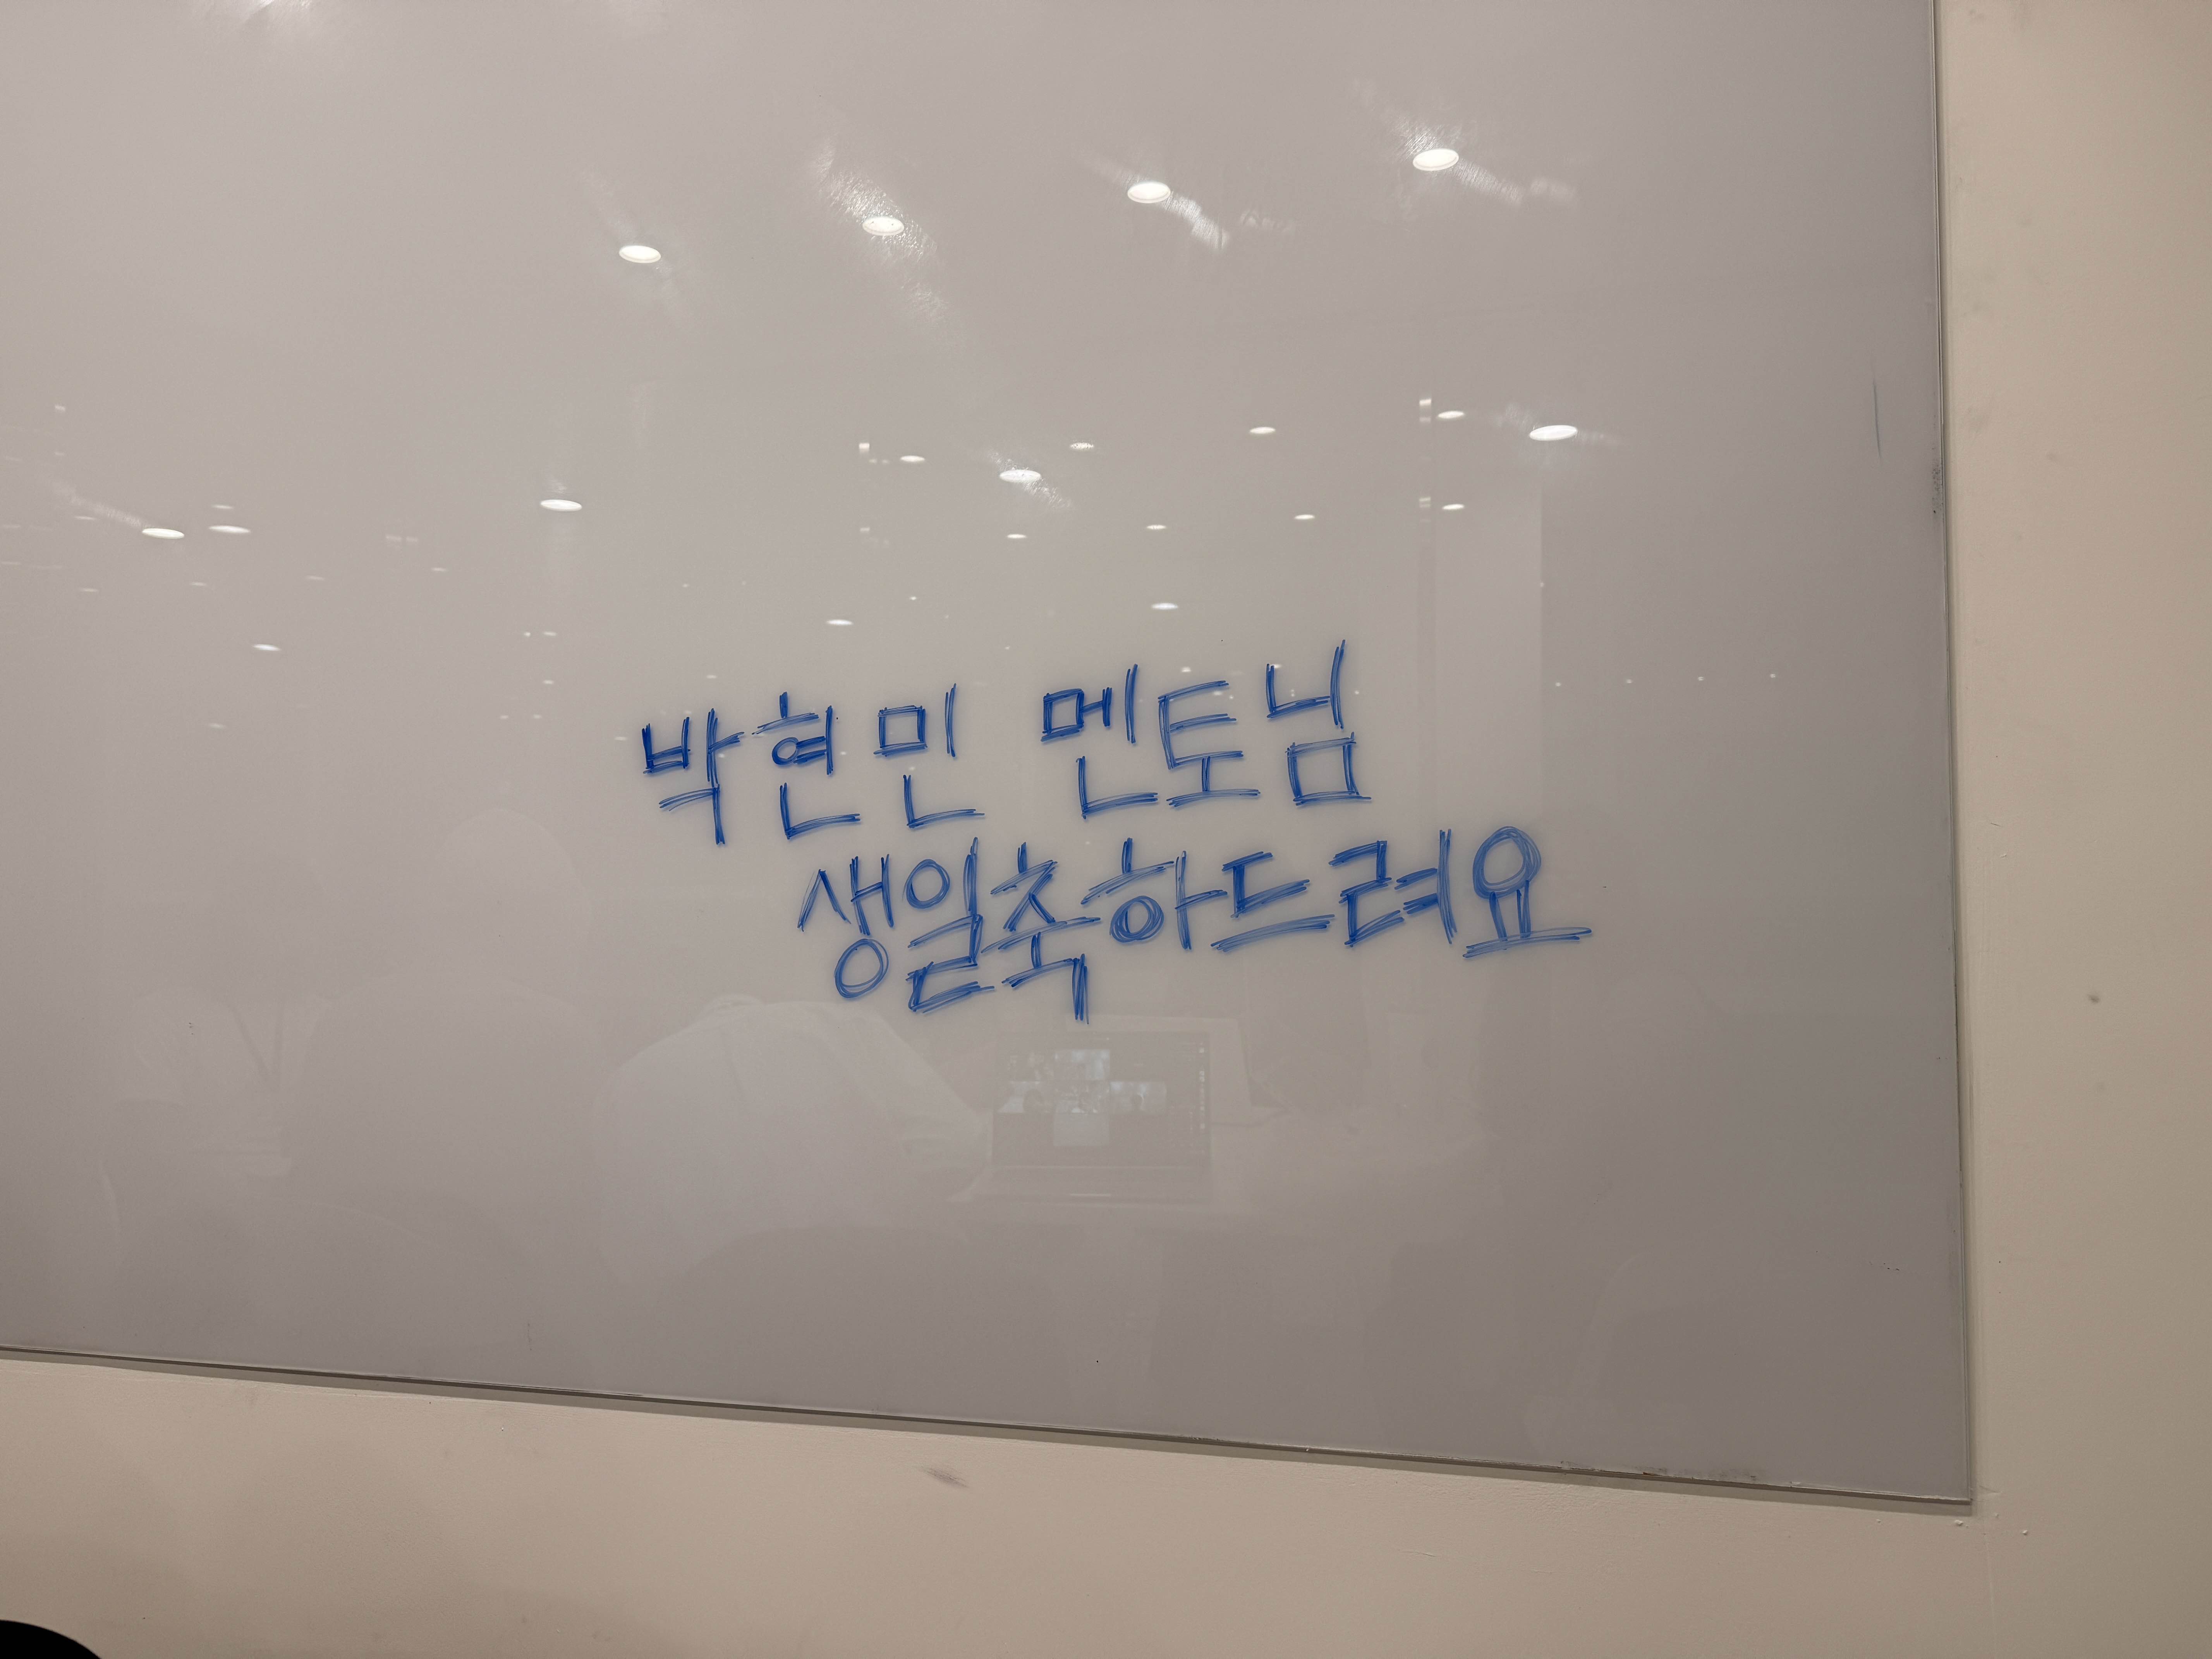 박현민 멘토님
생일축하드려요